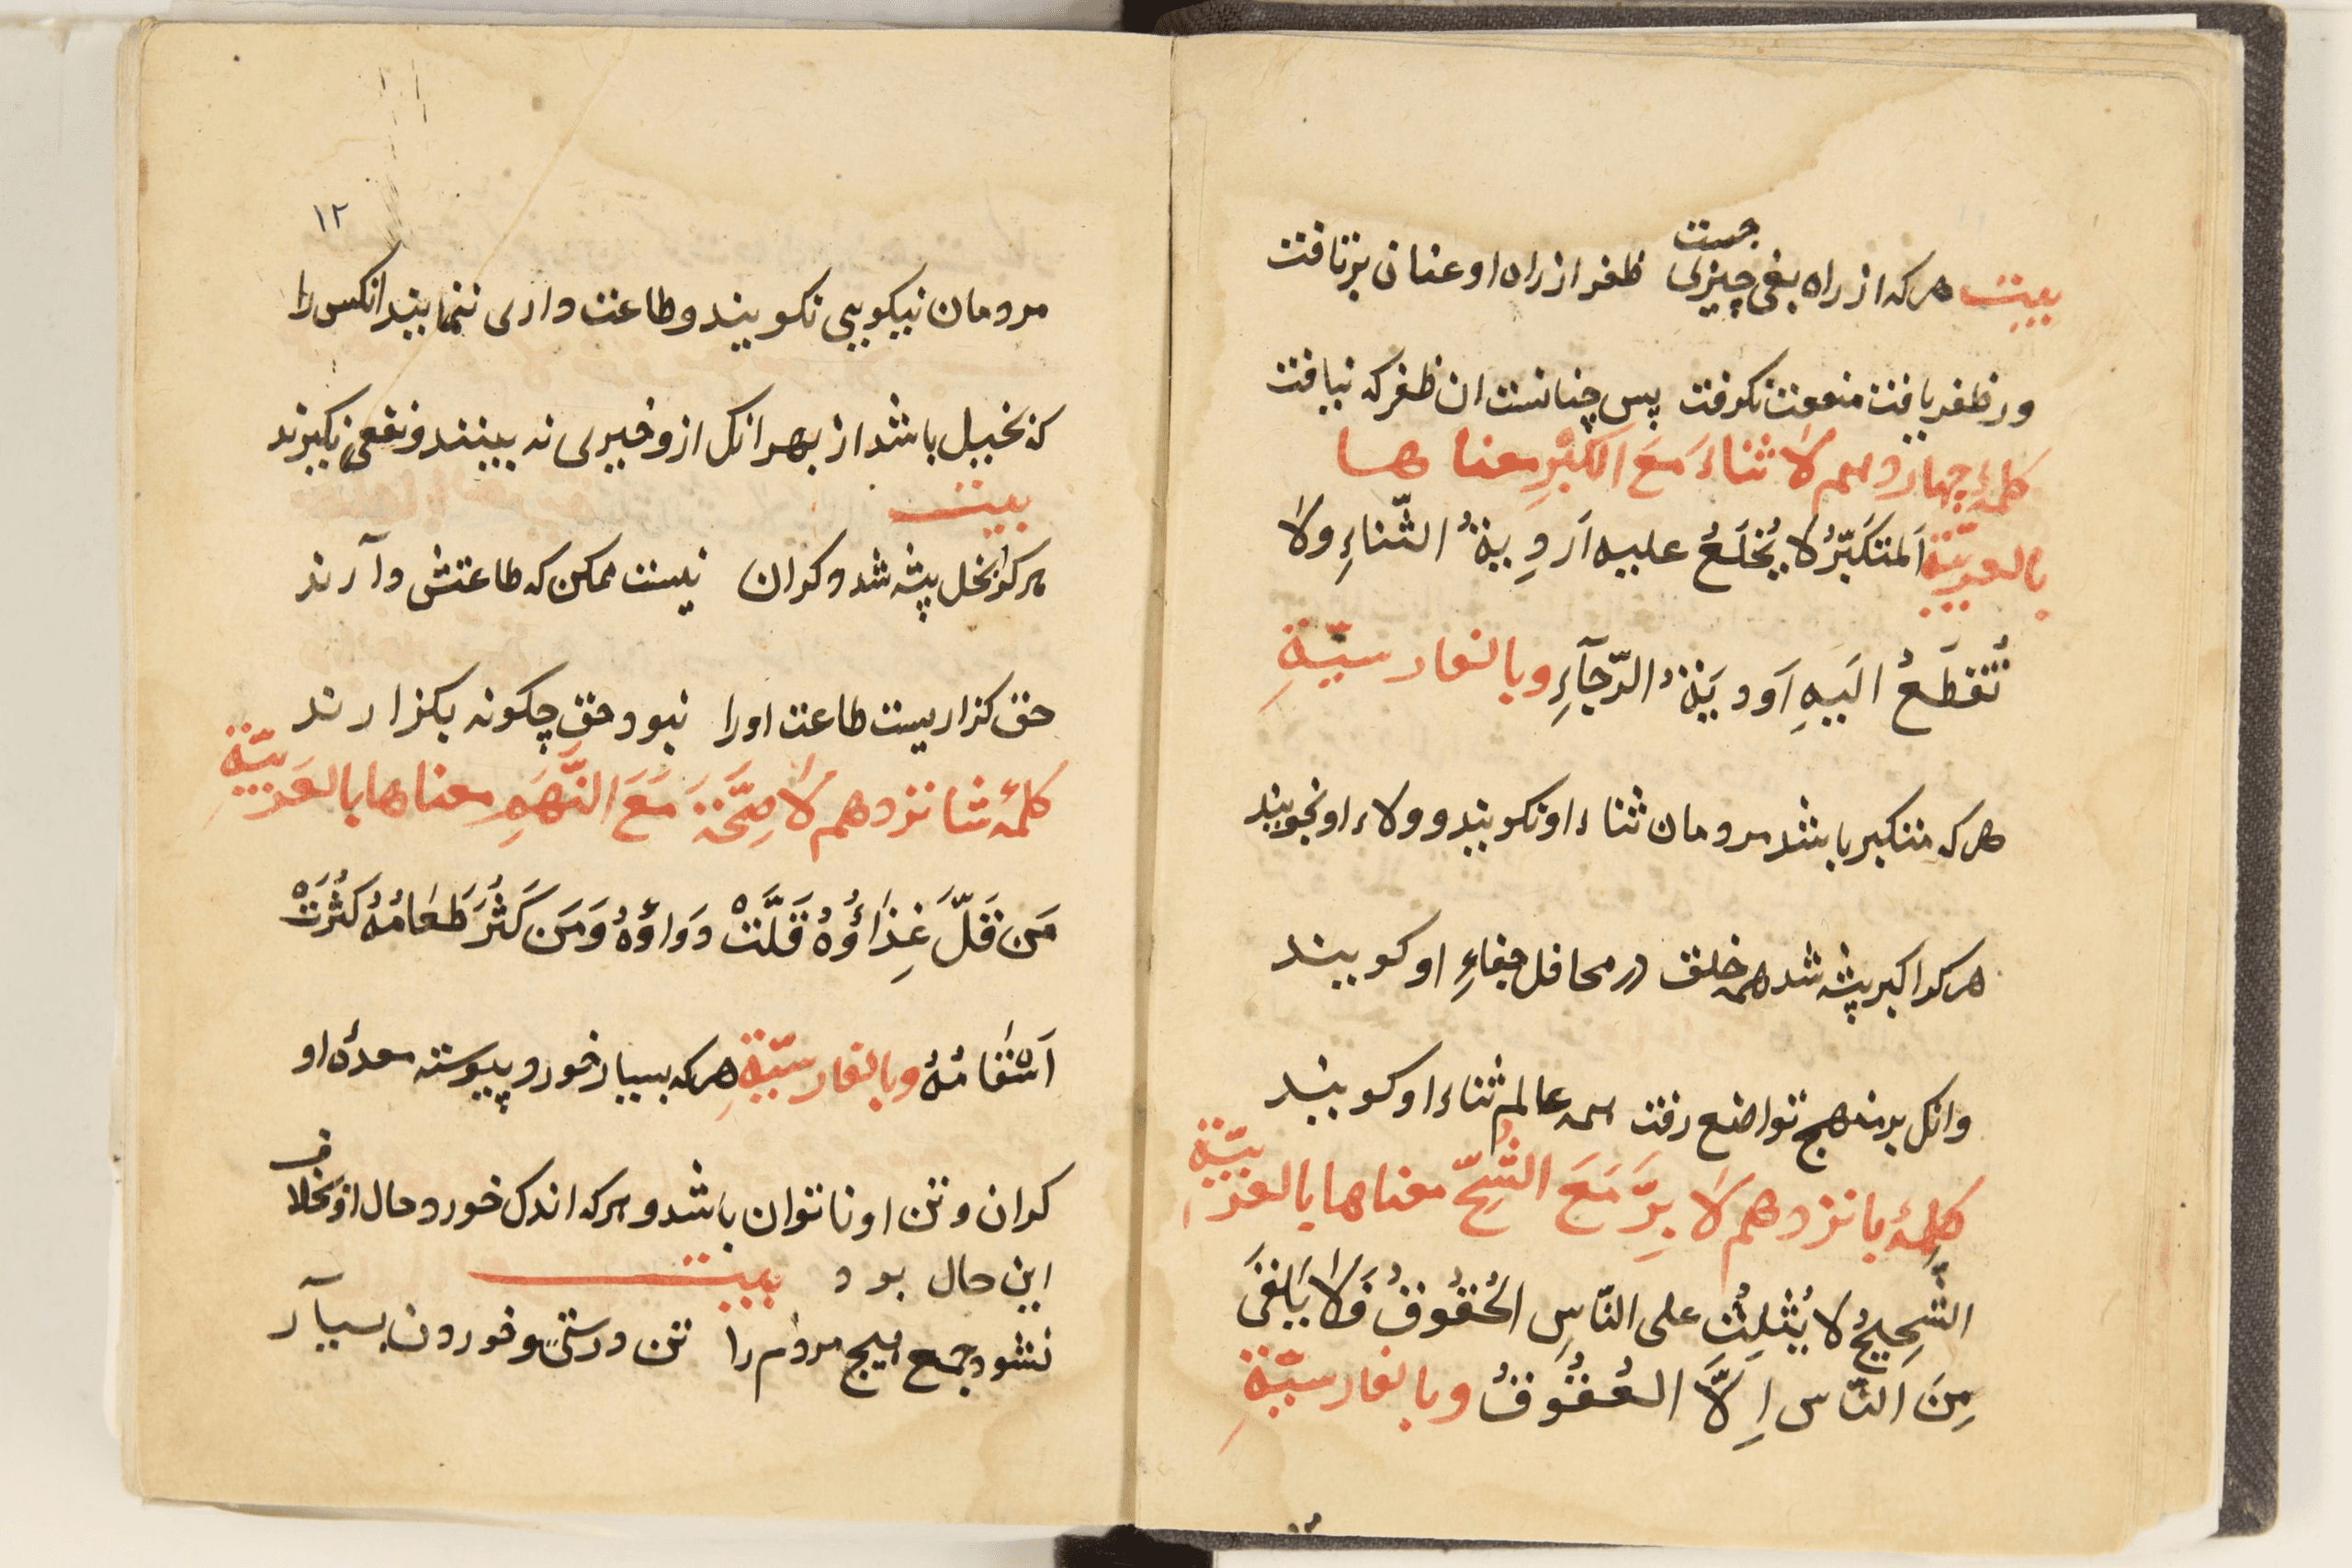 جست
بیت هرکه از راه بغی چیزی ظفر از راه او عنان برتافت
ور ظفر یافت منفعت نکرفت پس چنانست ان ظفر که نیافت
کلمهٔ چهاردهم لَا ثناءَ مَعَ الکِبْرِ معناها
بالعربیّة اَلمتکَبِّرُ لا یُخلَعُ علیه اَردِیةُ الثّناءِ ولا
تُقطَعُ الَیهِ اَودیَةُ الرّجآءِ وبالفارسیّةِ
هرکه متکبر باشد مردمان ثناء او نکویند و ولاء او نجویند
هرکرا کبر پیشه شد همه خلق در محافل جفاءِ او کویند
وانک بر منهج تواضع رفت همه عالم ثناء او کویند
کلمهٔ پانزدهم لَا بِرَّ مَعَ الشُّحِّ معناها بالعربیّة
الشَّحِیحُ لا یُثْلِثُ علی النّاسِ الحُقُوقُ فَلَا یَلقَی
مِنَ النّاس اِلَّا العُقُوقُ وبالفارسیّةِ
۱۲
مردمان نیکویی نکویند و طاعت داری ننمایند انکس را
که بخیل باشد از بهر انک ازو خیری نه بینند و نفعی نکیرند
بیت
هرکرا بخل پیشه شد وکران نیست ممکن که طاعتش دآرند
حق کزاریست طاعت اورا نبود حق چکونه بکزارند
کلمهٔ شانزدهم لَا صِحَّةَ مَعَ النَّهَمِ معناها بالعَربیّةِ
مَن قَلَّ غِذَاؤُهُ قَلَّتْ دَواؤُهُ وَمَن کَثُرَ طَعَامُهُ کَثُرَتْ
اَسْقامُهُ وبالفارسیّةِ هرکه بسیار خورد پیوسته معدهٔ او
کران و تن او ناتوان باشد و هرکه اندک خورد حال او بخلاف
این حال بود بیت
نشود جمع هیچ مردم را تن درستی و خوردن بسیآر